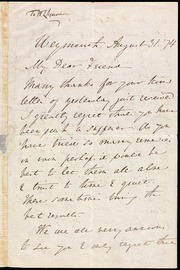 Weymouth, August 31. 74
My Dear Friend
Many thanks for your kind
letter of yesterday just received
I greatly regret that you have
been such a sufferer. As you
have tried so many remedies
in vain perhaps it would be
best to let them all alone
& trust to time & quiet
These sometimes bring the
best results.
We are all very anxious
to see you & only regret that